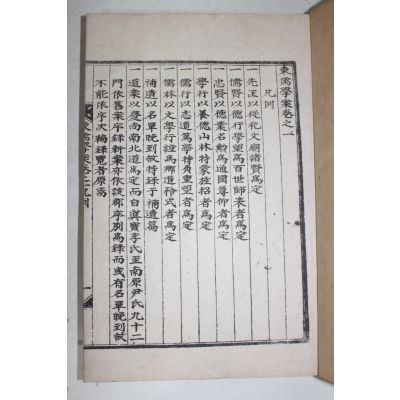 東儒學案卷之一
凡例
一先正以從祀文廟諸賢爲定
一儒賢以德行學望爲百世師表者爲定
一忠賢以德業名勳爲通國尊仰者爲定
一學行以養德山林特蒙旌招者爲定
一志道篤學持負重望者爲定
一儒林以文學行誼爲鄕道矜式者爲定
一補遺以名單晩到故特錄于補遺篇
一道案以慶尙南北道爲定而自眞寶李氏至南原尹氏九十二
門依舊案序錄新案亦依該郡序別爲錄而或有名單晩到故
不能依序次編錄覽者原焉
東儒學案卷之一 凡例
一